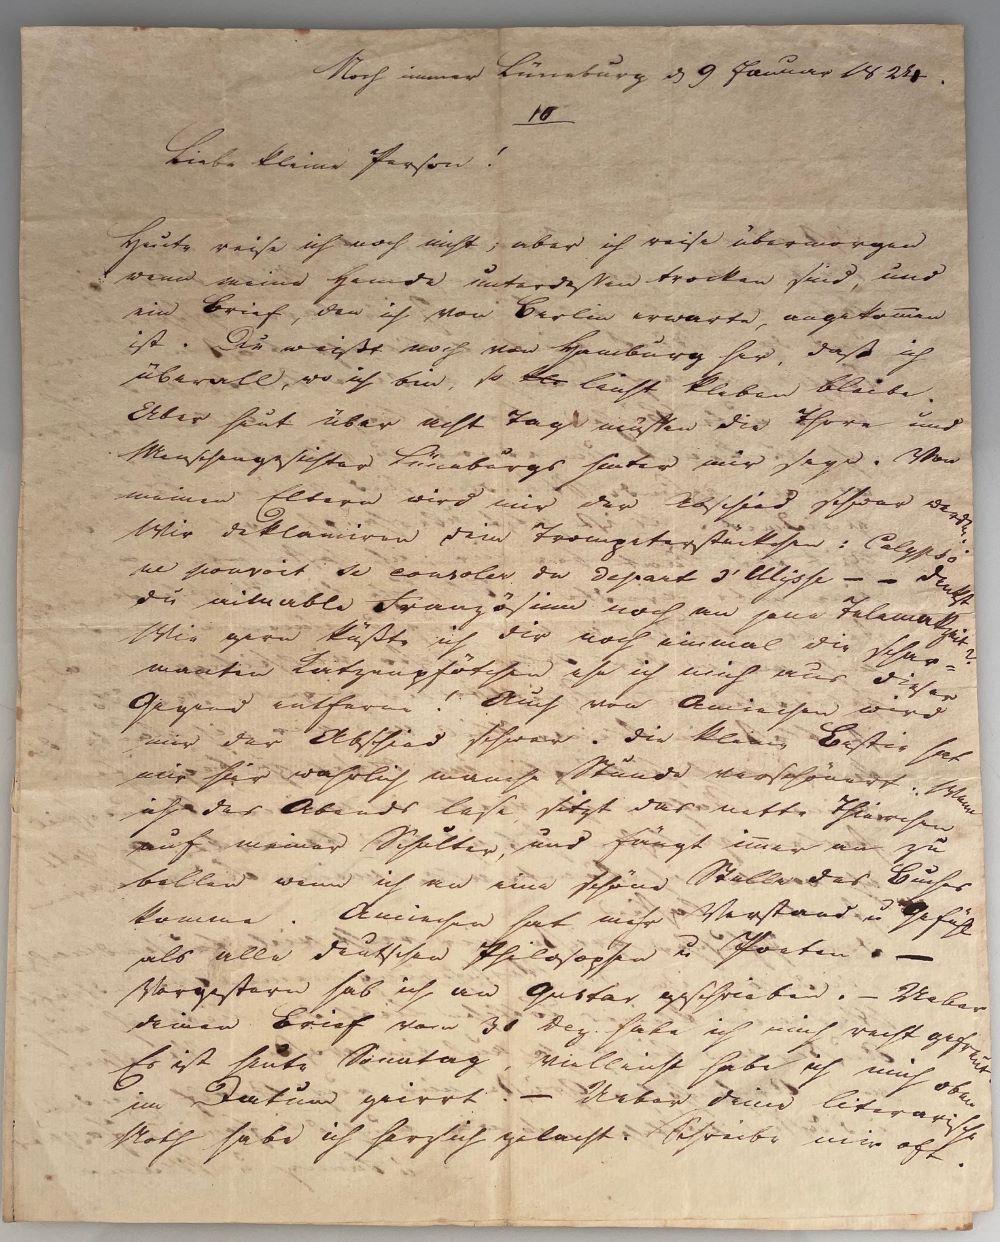 Noch immer Lüneburg d 9 Januar 1824.
10
Liebe kleine Person!
Heute reise ich noch nicht; aber ich reise übermorgen
wenn meine Hemde unterdessen trocken sind, und
ein Brief, den ich von Berlin erwarte, angekom̄en
ist. Du weißt noch von Hamburg her, daß ich
überall, wo ich bin, so leicht kleben bleibe.
Aber heut über acht Tag müssen die Thore und
Menschengesichter Lüneburgs hinter mir seyn. Von
meinen Eltern wird mir der Abschied schwer werden.
Wir deklamiren dein Trompeterstückchen: Calypso
ne pouvoit se consoler du depart d'Ulysse – – denkst
du aimable Französinn noch an jene Telemakzeit?
Wie gern küßte ich dir noch einmal die schar=
manten Katzenpfötchen ehe ich mich aus dieser
Gegend entferne! Auch von Amiechen wird
mir der Abschied schwer. die kleine Bestie hat
mir hier wahrlich manche Stunde verschönert. Wenn
ich des Abends lese sitzt das nette Thierchen
auf meiner Schulter, und fängt im̄er an zu
bellen wenn ich an eine schöne Stelle des Buches
komme. Amiechen hat mehr Verstand u Gefühl
als alle deutschen Philosophen u Poeten. —
Vorgestern hab ich an Gustav geschrieben. — Ueber
deinen Brief vom 30 Dez. habe ich mich recht gefreut.
Es ist heute Sonntag, vielleicht habe ich mich oben
im Datum geirrt. — Ueber deine literarische
Noth habe ich herzlich gelacht. Schreibe mir oft.